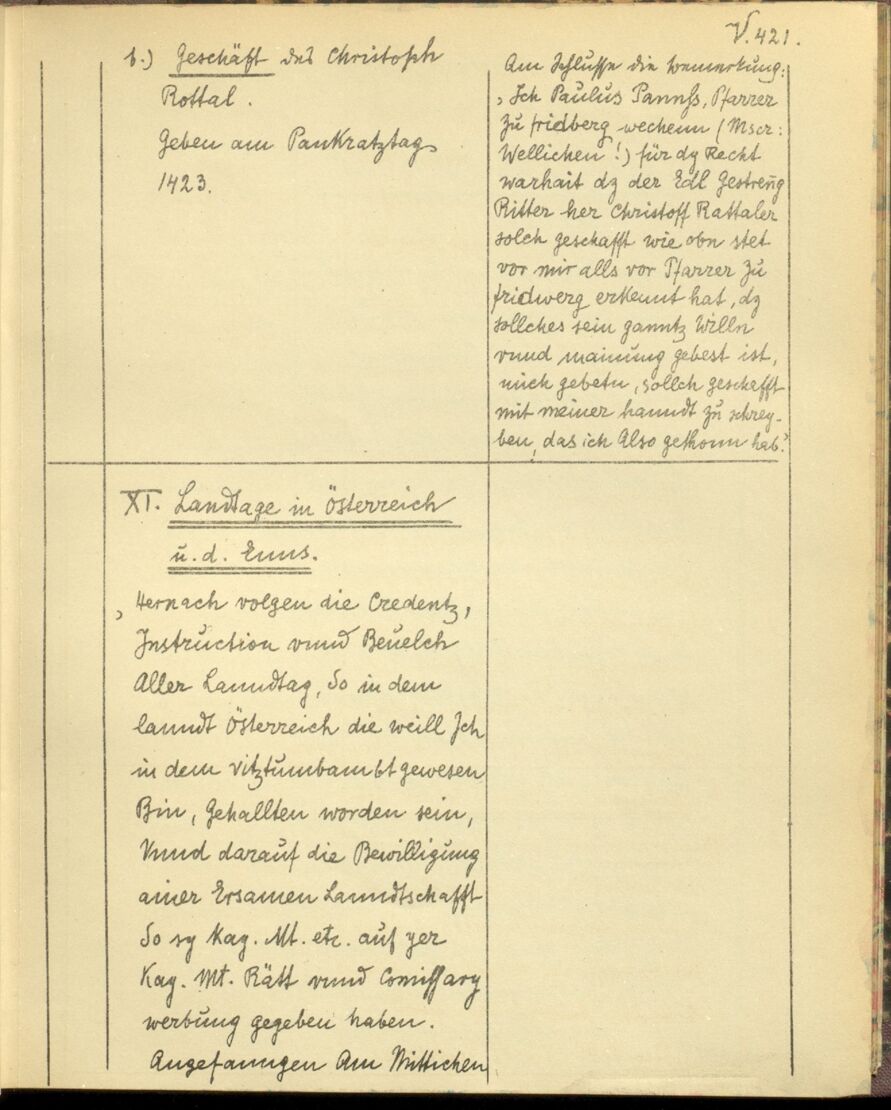 V.421.
b.) Geschäft des Christoph
Rottal.
Geben am Pankratztag
1423.
Am Schlusse die Bemerkung:
„Ich Paulus Pannss, Pfarrer
zu fridberg wechenn (Mscr:
Wellichen!) für dy Recht
warhait dz der Edl Gestreng
Ritter her Christoff Rattaler
solch geschafft wie obn stet
vor mir alls vor Pfarrer zu
fridwerg erkennt hat, dz
sollches sein ganntz Willn
vnnd mainung gebest ist,
mich gebetn, sollch geschafft
mit meiner hanndt zu schrey-
ben, das ich Also gethonn hab."
XI. Landtage in Österreich
u. d. Enns.
„Hernach volgen die Credentz,
Instruction vnnd Beuelch
Aller Lanndtag, So in dem
lanndt Österreich die weill Ich
in dem vitztumbambt gewesen
Bin, Gehallten worden sein,
Vnnd darauf die Bewilligung
ainer Ersamen Lanndtschafft
So sy Kay. Mt. etc. auf yer
Kay. Mt. Rätt vnnd Comissary
werbung gegeben haben.
Angefanngen Am Mittichen